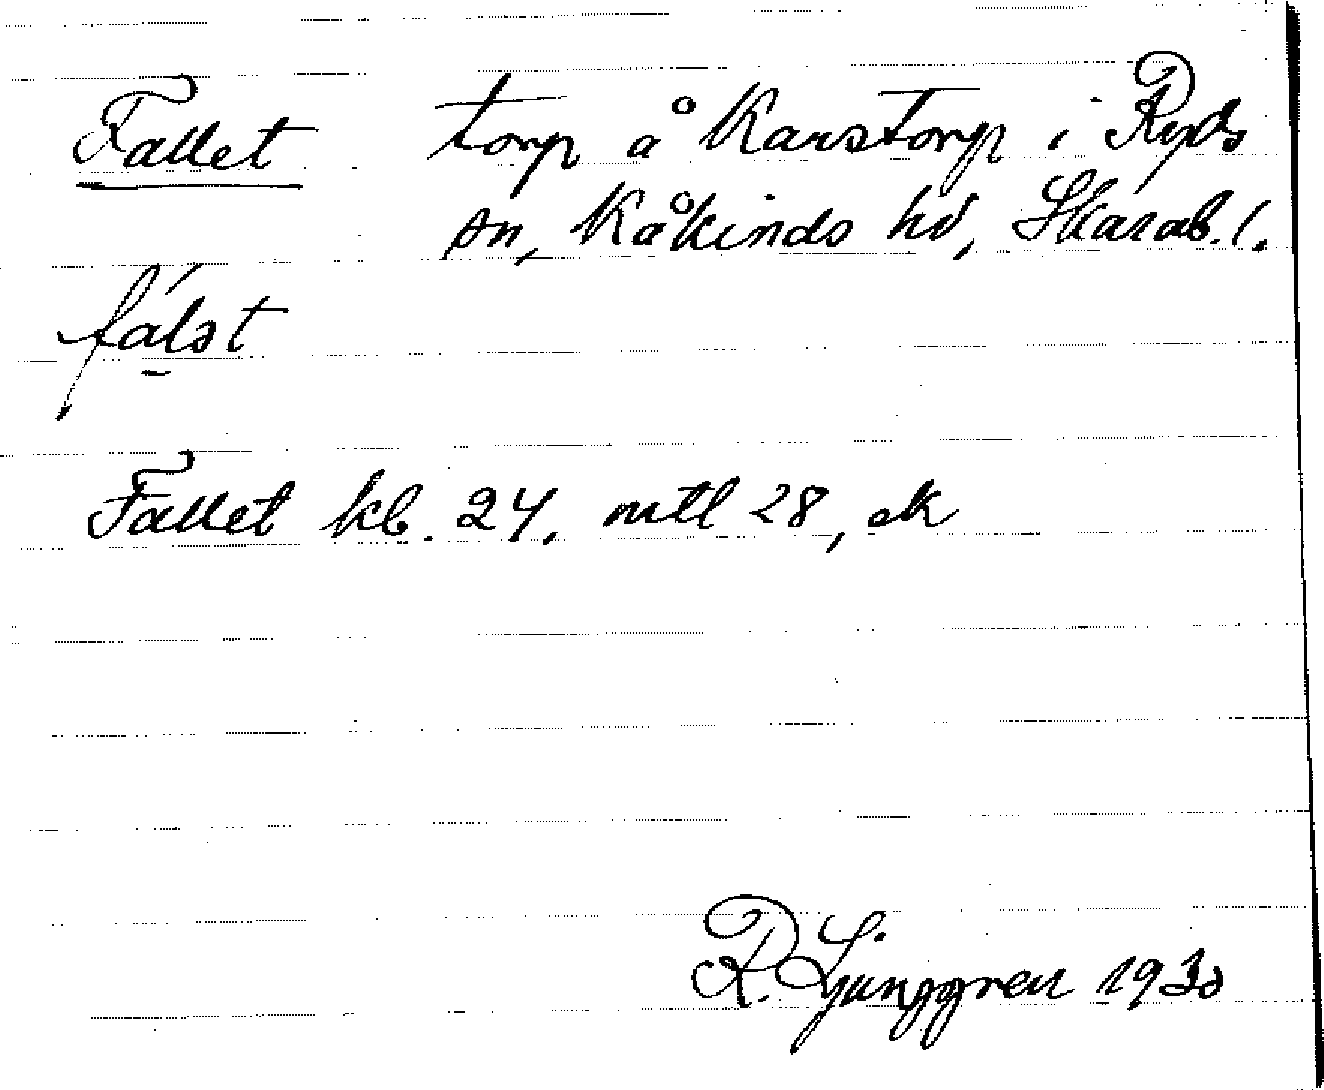 Fallet torp å Karstorp i Ryds
sn, Kåkinds hd, Skarab. l.
fálst
Fallet kb. 24, mtl 28, ek
R. Ljunggren 1930